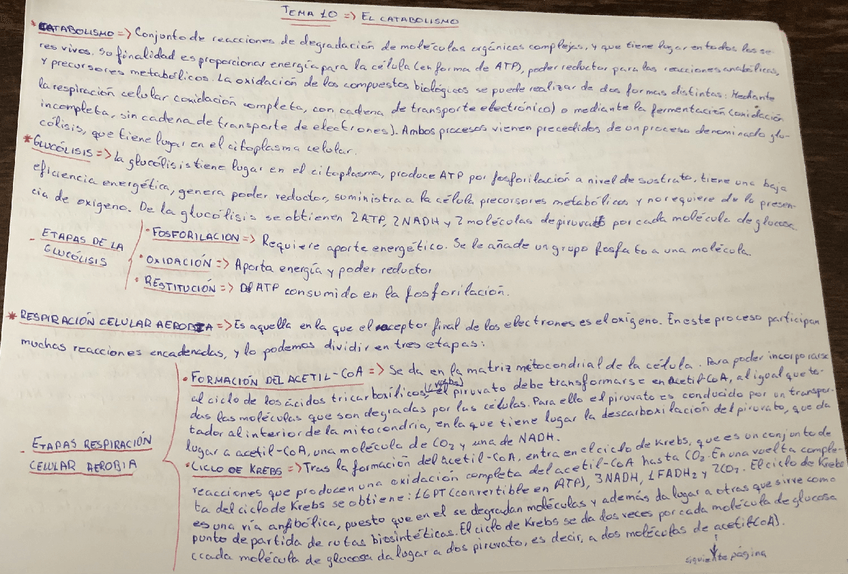 TEMA 10 => EL CATABOLISMO
*CATABOLISMO => Conjunto de reacciones de degradación de moléculas orgánicas complejas, y que tiene lugar en todos los se-
res vivos. Su finalidad es proporcionar energía para la célula (en forma de ATP), poder reductor para las reacciones anabólicas,
y precursores metabólicos. La oxidación de los compuestos biológicos se puede realizar de dos formas distintas: Mediante
la respiración celular (oxidación completa, con cadena de transporte electrónico) o mediante la fermentación (oxidación
incompleta, sin cadena de transporte de electrones). Ambos procesos vienen precedidos de un proceso denominado glu-
cólisis, que tiene lugar en el citoplasma celular.
*GLUCÓLISIS => La glucólisis tiene lugar en el citoplasma, produce ATP por fosforilación a nivel de sustrato, tiene una baja
eficiencia energética, genera poder reductor, suministra a la célula precursores metabólicos y no requiere de la presen-
cia de oxígeno. De la glucólisis se obtienen 2 ATP, 2 NADH y 2 moléculas de piruvato por cada molécula de glucosa
- ETAPAS DE LA
GLUCÓLISIS
• FOSFORILACION => Requiere aporte energético. Se le añade un grupo fosfato a una molécula.
• OXIDACIÓN => Aporta energía y poder reductor
• RESTITUCIÓN => De ATP consumido en la fosforilación.
*RESPIRACIÓN CELULAR AEROBIA => Es aquella en la que el aceptor final de los electrones es el oxígeno. En este proceso participan
muchas reacciones encadenadas, y lo podemos dividir en tres etapas:
- ETAPAS RESPIRACIÓN
CELULAR AEROBIA
• FORMACIÓN DEL ACETIL-CoA => Se da en la matriz mitocondrial de la célula. Para poder incorporarse
al ciclo de los ácidos tricarboxílicos (Krebs) el piruvato debe transformarse en Acetil-CoA, al igual que to-
das las moléculas que son degradas por las células. Para ello el piruvato es conducido por un transpor-
tador al interior de la mitocondria, en la que tiene lugar la descarboxilación del piruvato, que da
lugar a acetil-CoA, una molécula de CO2 y una de NADH.
• CICLO DE KREBS => Tras la formación del Acetil-CoA, entra en el ciclo de Krebs, que es un conjunto de
reacciones que producen una oxidación completa del acetil-CoA hasta CO2. En una vuelta comple-
ta del ciclo de Krebs se obtiene: 1 GPT (convertible en ATP), 3 NADH, 1 FADH2 y 2 CO2. El ciclo de Krebs
es una vía anfibólica, puesto que en el se degradan moléculas y además da lugar a otras que sirve como
punto de partida de rutas biosintéticas. El ciclo de Krebs se da dos veces por cada molécula de glucosa
(cada molécula de glucosa da lugar a dos piruvato, es decir, a dos moléculas de acetil CoA).
siguiente página